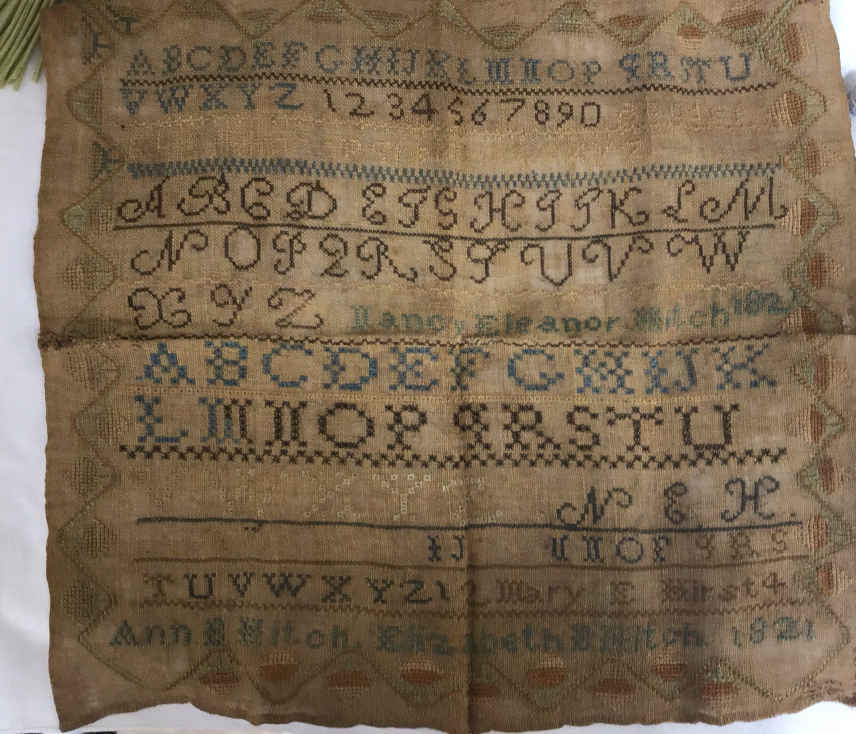 ABCDEFGHIJKLMNOP QRSTU
VWXYZ 1234567890
ABCD EFGHIJKLM
NOPQRSTUVW
XYZ Nancy Eleanor Hitch 1821
ABCDEFGHIJK
LMNOP QRSTU
N E H.
IJ MNOP QRS
TUVWXYZ12 Mary E
Ann B Hitch. Elizabeth B Hitch. 1821